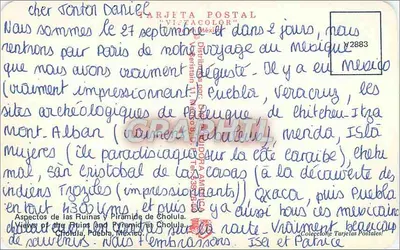 cher Tonton Daniel
TARJETA POSTAL
"VISTACOLOR"
Nous sommes le 27 septembre et dans 2 jours, nous
rentrons pour Paris de notre voyage au mexique
que nous avons vraiment dégusté. Il y a eu Mexico
(vraiment impressionnant) Puebla, Veracruz, les
72883
sites archéologiques de Palenque de Chitchen Itza
mont. Alban (vraiment), merida, Isla
mujeres (île paradisiaque sur la côte caraïbe), chetu
mal, san cristobal de las casas (à la découverte des
indiens (impressionnants)) Oaxaca, puis Puebla
en tout 4300 kms et puis il y a aussi tous ces mexicains
sur la route. Vraiment beaucoup
de souvenirs. Nous t'embrassons. Isa et Patrice
Aspectos de las Ruinas y Pirámide de Cholula.
Cholula, Puebla, México.
Colección Tarjetas Postales